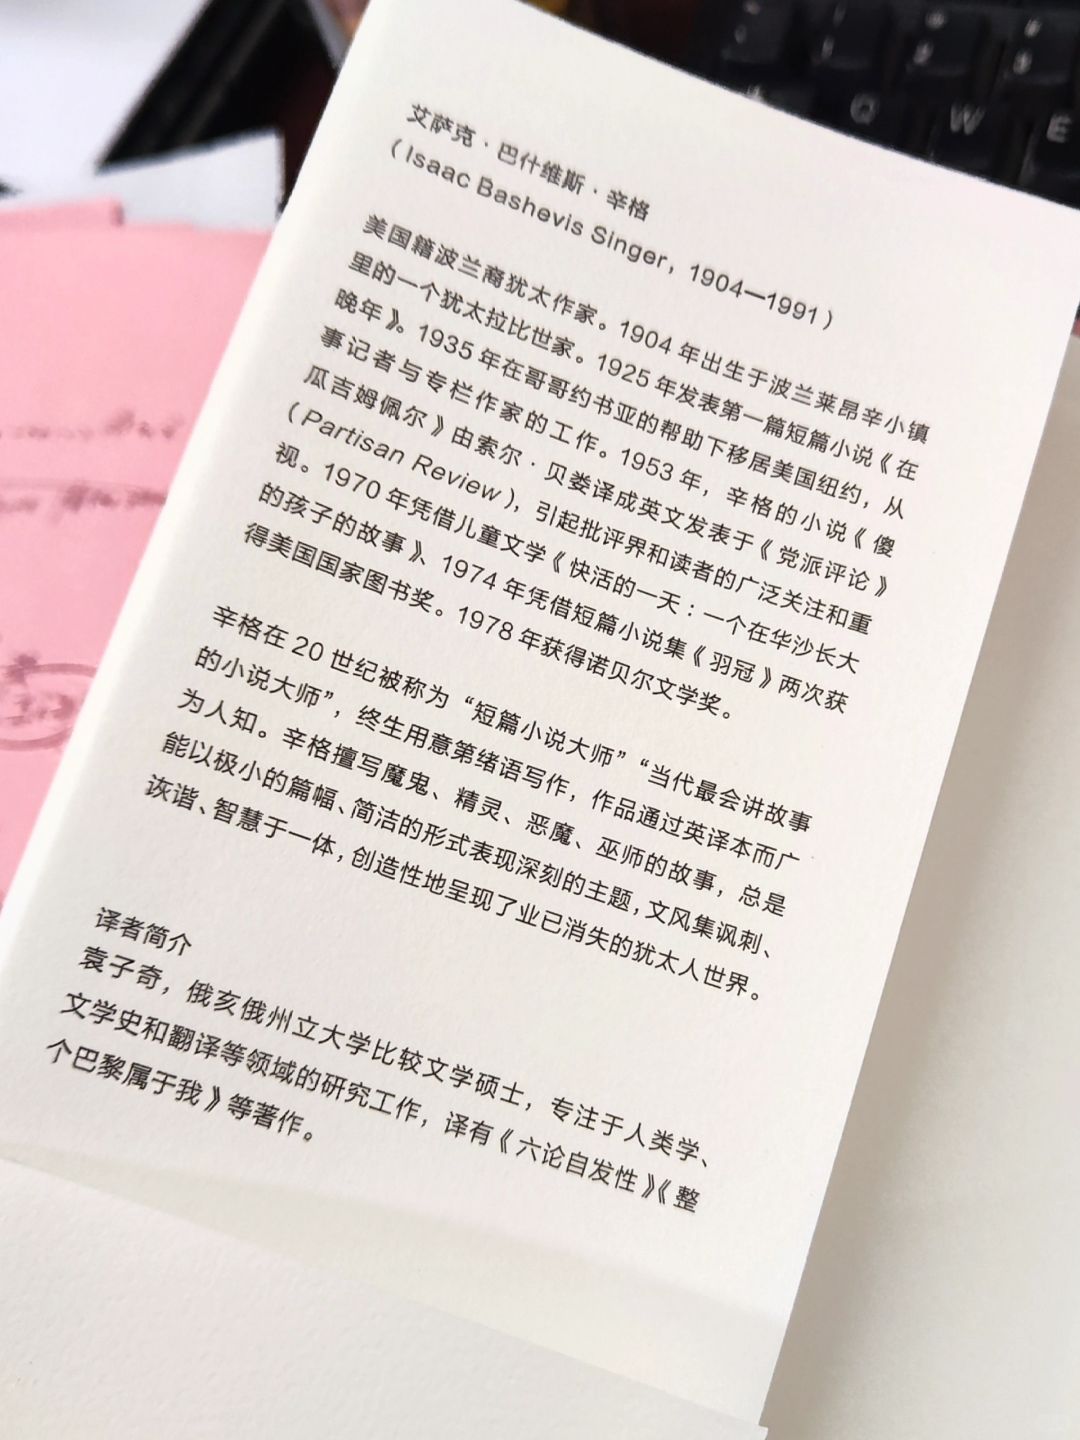 艾萨克·巴什维斯·辛格
（Isaac Bashevis Singer，1904—1991）
美国籍波兰裔犹太作家。1904年出生于波兰莱昂辛小镇
里的一个犹太拉比世家。1925年发表第一篇短篇小说《在
晚年》。1935年在哥哥约书亚的帮助下移居美国纽约，从
事记者与专栏作家的工作。1953年，辛格的小说《傻
瓜吉姆佩尔》由索尔·贝娄译成英文发表于《党派评论》
（Partisan Review），引起批评界和读者的广泛关注和重
视。1970年凭借儿童文学《快活的一天：一个在华沙长大
的孩子的故事》、1974年凭借短篇小说集《羽冠》两次获
得美国国家图书奖。1978年获得诺贝尔文学奖。
辛格在20世纪被称为“短篇小说大师”“当代最会讲故事
的小说大师”，终生用意第绪语写作，作品通过英译本而广
为人知。辛格擅写魔鬼、精灵、恶魔、巫师的故事，总是
能以极小的篇幅、简洁的形式表现深刻的主题，文风集讽刺、
诙谐、智慧于一体，创造性地呈现了业已消失的犹太人世界。
译者简介
袁子奇，俄亥俄州立大学比较文学硕士，专注于人类学、
文学史和翻译等领域的研究工作，译有《六论自发性》《整
个巴黎属于我》等著作。
Q
W
E